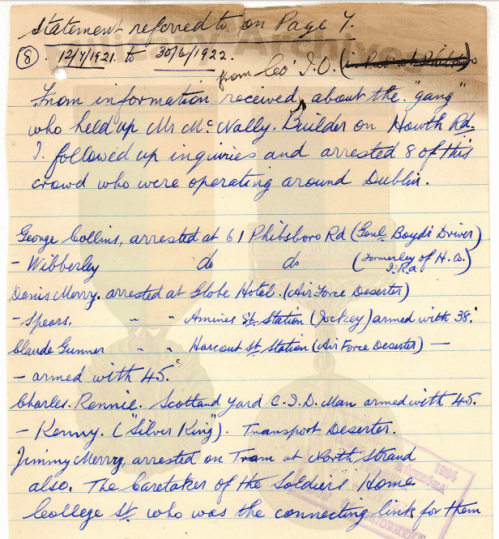 Statement referred to on Page 7.
(8). 12/7/1921. to 30/6/1922.
from Coo' I.O.
From information received, about the "gang"
who held up Mr McNally. Builder on Howth Rd.
I. followed up inquiries and arrested 8 of this
crowd who were operating around Dublin.
George Collins, arrested at 61 Phibsboro Rd (Genl Boyd's Driver)
- Wibberley do do (Formerley of H.Q. I.R.A)
Denis Merry. arrested at Globe Hotel. (Air Force Deserter)
- Spears. " " Amiens St. Station (Jockey) armed with 38.
Claude Gunner " " Harcourt St Station (Air Force Deserter) —
- armed with 45.
Charles. Rennie. Scotland Yard C.I.D. Man armed with 45.
- Kenny. ("Silver King"). Transport Deserter.
Jimmy Merry, arrested on Tram at North Strand
also. The Caretaker of the Soldiers Home
College St. who was the connecting link for them